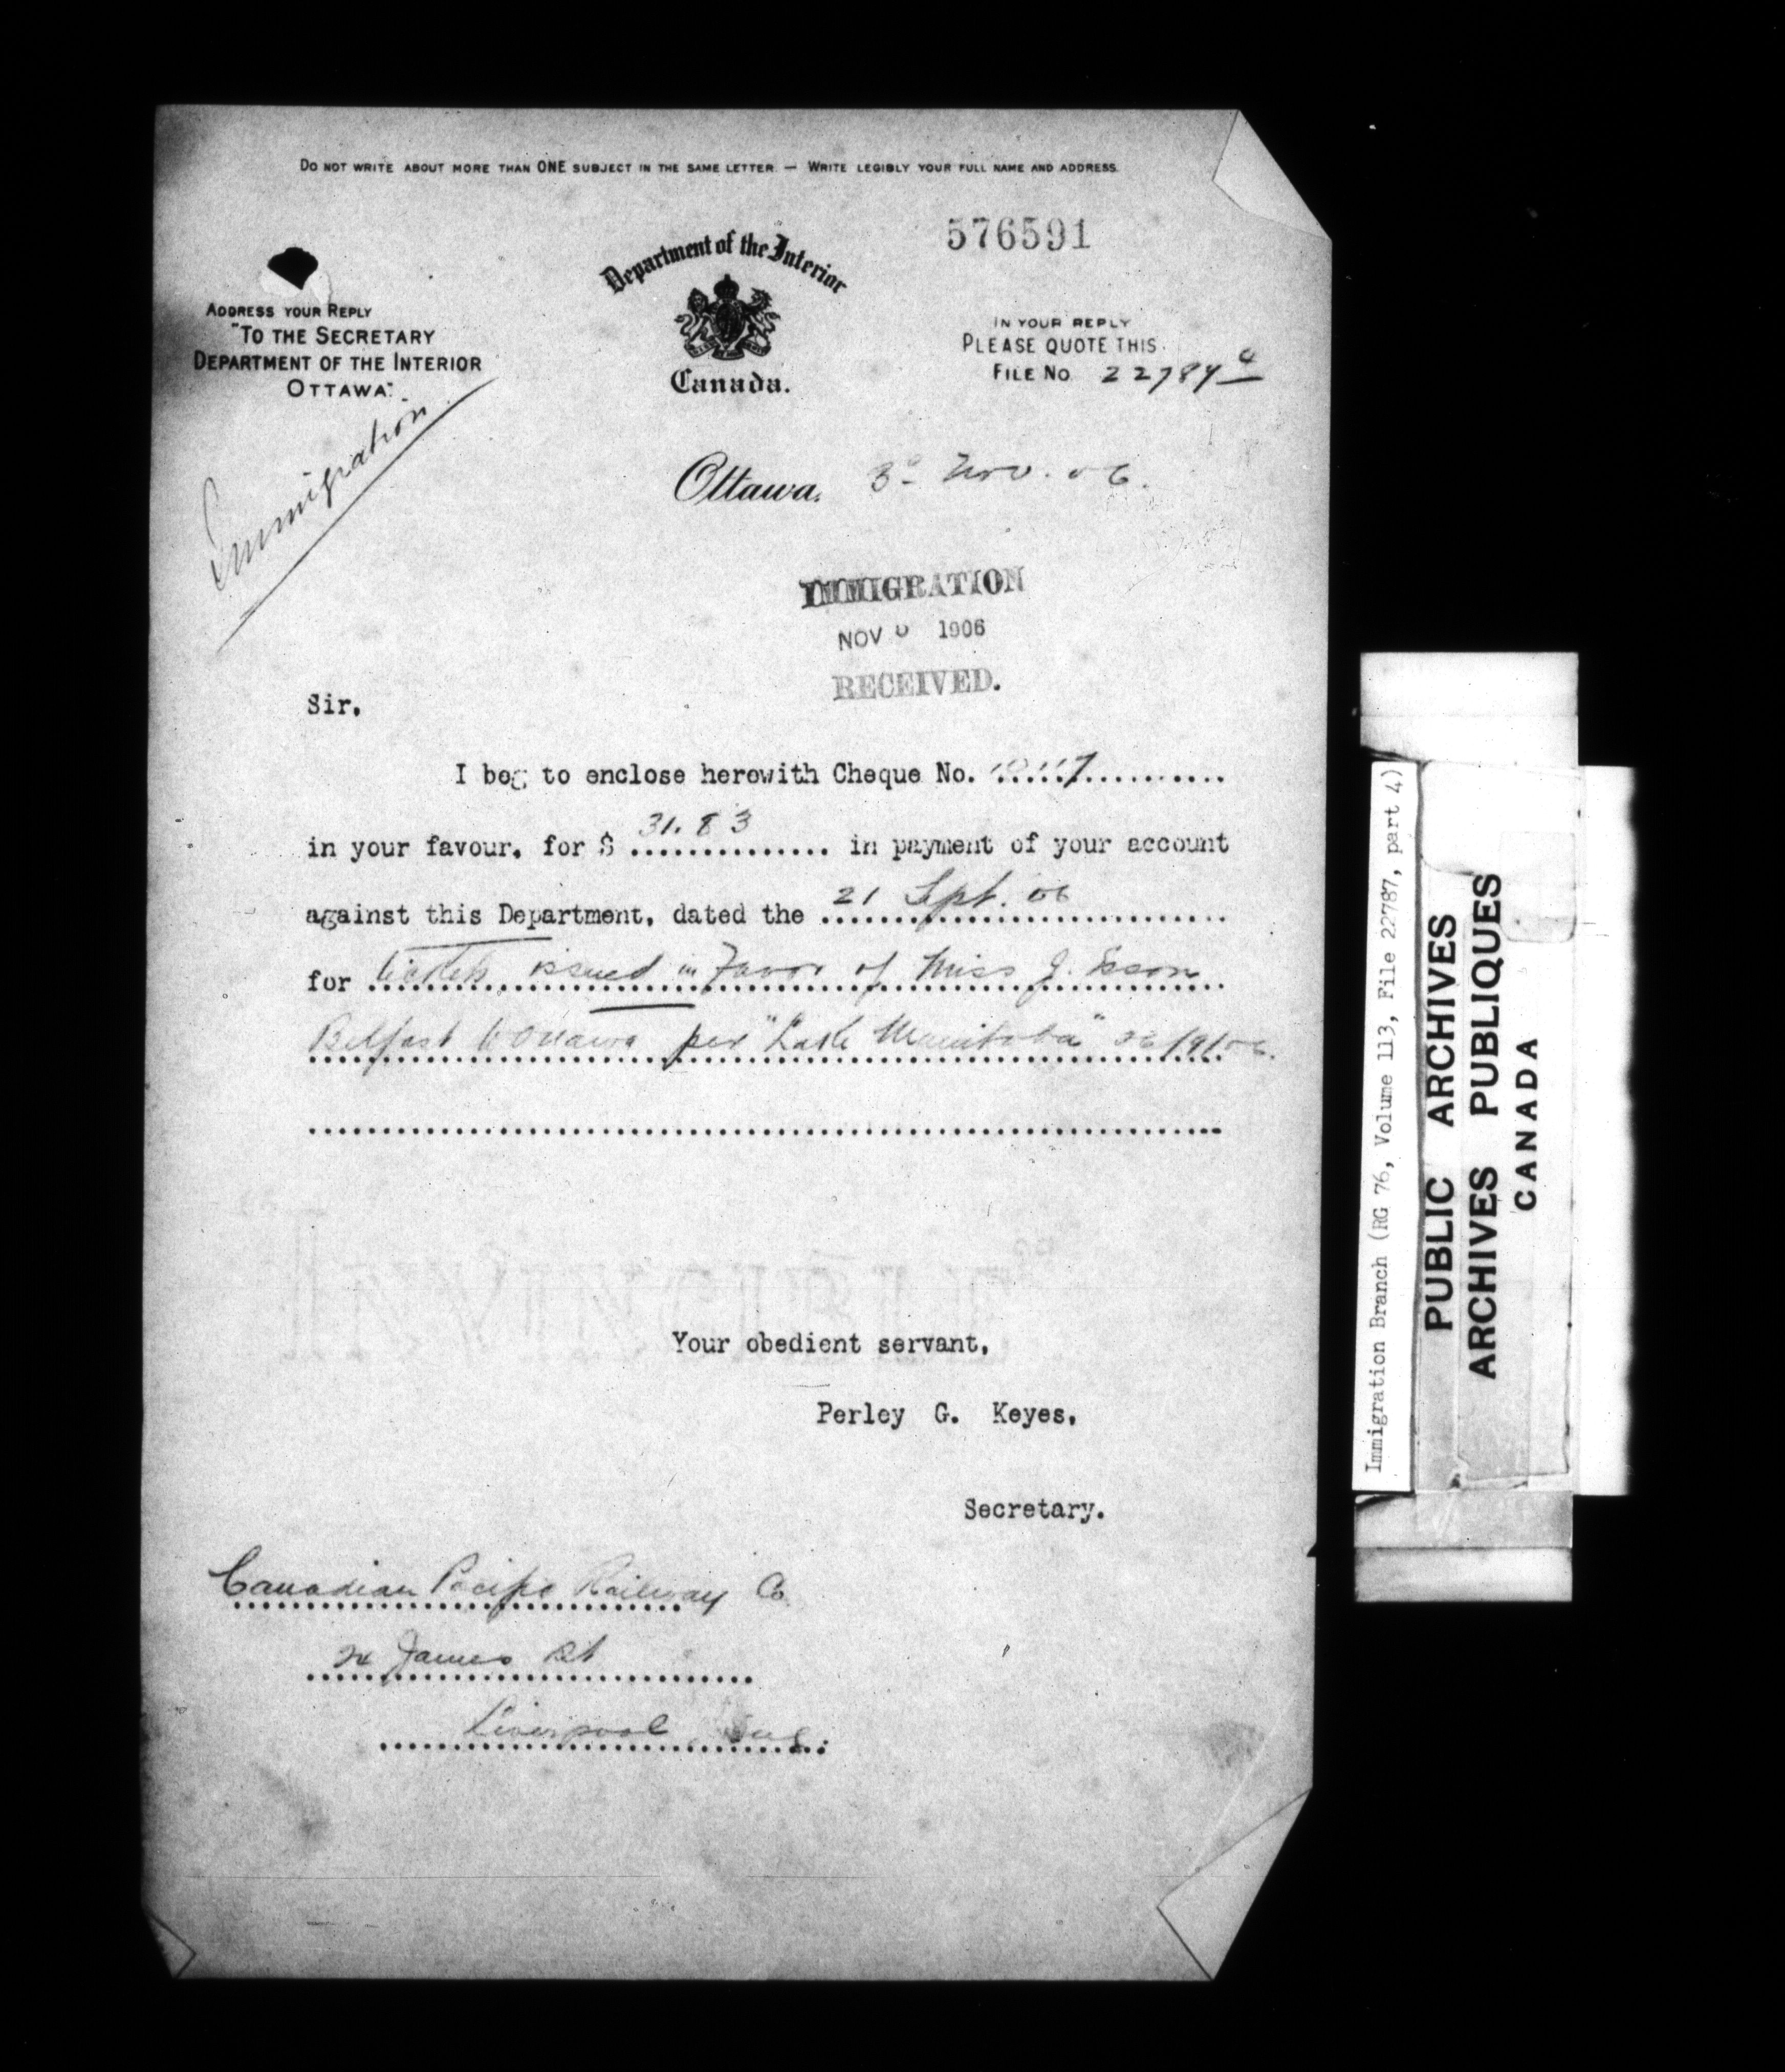 DO NOT WRITE ABOUT MORE THAN ONE SUBJECT IN THE SAME LETTER. — WRITE LEGIBLY YOUR FULL NAME AND ADDRESS.
576591
Department of the Interior
Canada.
ADDRESS YOUR REPLY
"TO THE SECRETARY
DEPARTMENT OF THE INTERIOR
OTTAWA."
IN YOUR REPLY
PLEASE QUOTE THIS
FILE NO
Immigration
Ottawa, 3d Nov. 06.
IMMIGRATION
NOV 1906
RECEIVED.
Sir,
I beg to enclose herewith Cheque No.
in your favour, for $ 31.83 in payment of your account
against this Department, dated the 21 Sept. 06
for tickets issued in favor of Miss J.
Belfast to Ottawa per "Lake Manitoba" /9/06.
Your obedient servant,
Perley G. Keyes,
Secretary.
Canadian Pacific Railway Co.
James St
Liverpool, Eng.
Immigration Branch (RG 76, Volume 113, File 22787, part 4)
PUBLIC ARCHIVES
ARCHIVES PUBLIQUES
CANADA